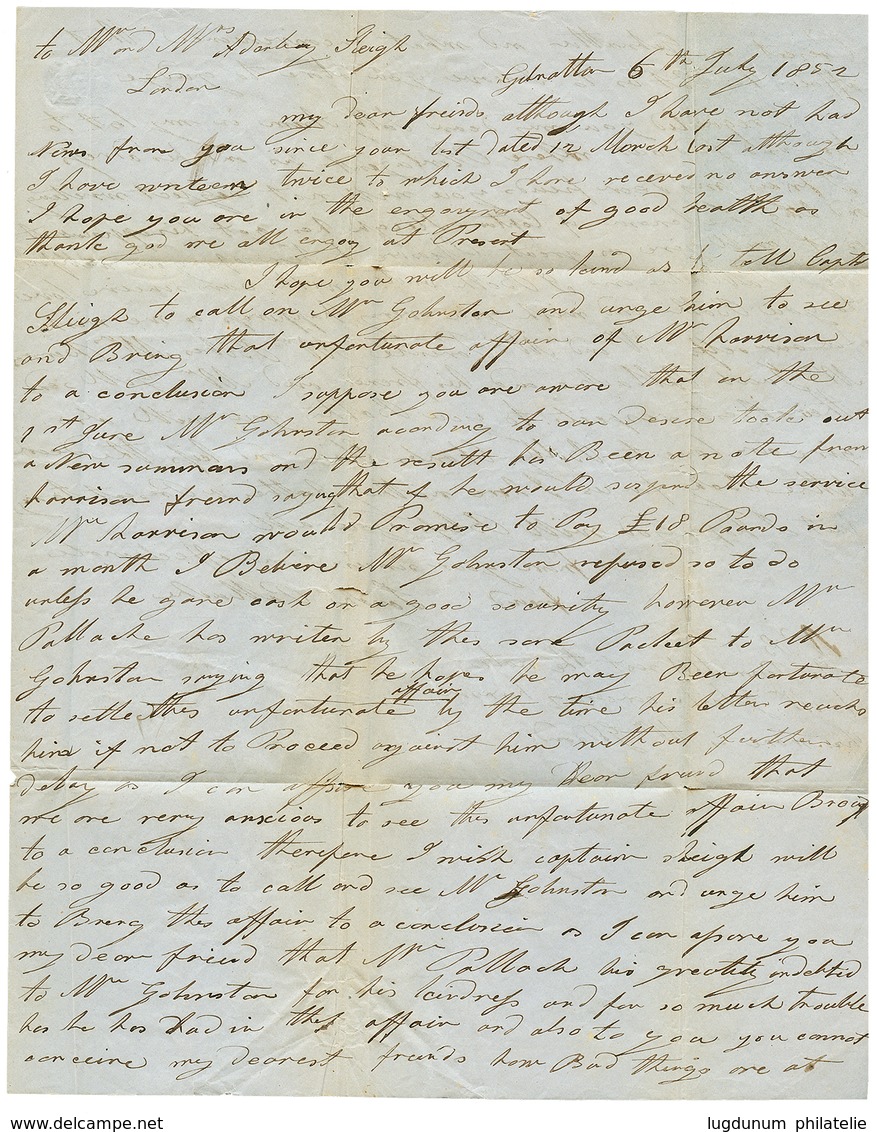 to Mr and Mrs Adorley Sleigh
Gibraltar 6th July 1852
London
my dear freinds although I have not had
News from you since your last dated 12 March last although
I have writeen twice to which I have receved no answer
I hope you are in the engoyment of good health as
thank god we all engoy at Present
I hope you will be so kind as to tell Captn
Sleigh to call on Mr Gohnston and urge him to see
and Bring that unfortunate affair of Mr harrison
to a conclusion I suppose you are aware that on the
1st June Mr Gohnston according to our desire took out
a New summons and the result his Been a note from
harrison freind saying that if he would suspend the service
Mr harrison would Promise to Pay £18 Pounds in
a month I Beleive Mr Gohnston refused so to do
unless he gave cash or a good security however Mr
Pallache has writen by this same Packet to Mr
Gohnston saying that he hopes he may Been fortunate
to settle this unfortunate affair by the time his letter reachs
him if not to Proceed against him without further
delay as I can assure you my Dear freind that
we are very anxious to see this unfortunate affair Broug
to a conclusion therefore I wish captain sleigh will
be so good as to call and see Mr Gohnston and urge him
to Breng this affair to a conclusion as I can assure you
my dear friend that Mr Pallach his greatily indebted
to Mr Gohnston for his kindness and for so much trouble
has he has had in this affair and also to you you cannot
conceive my dearest freinds how Bad things are at
www.delcampe.net
lugdunum philatelie